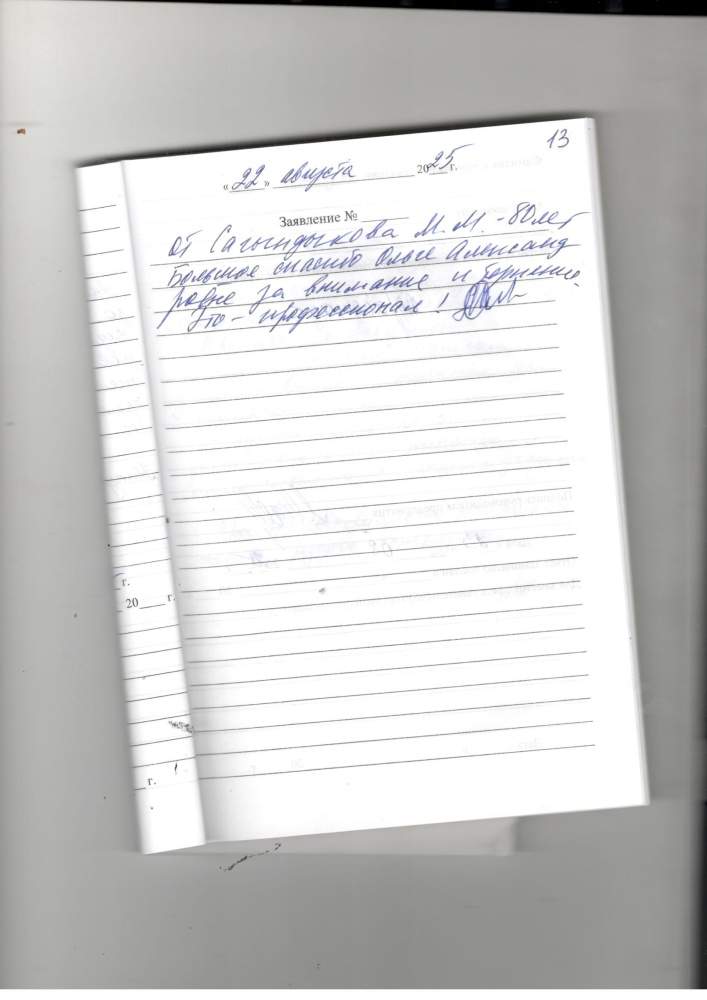 13
« 22 » августа 2025 г.
Заявление №
от Сагындыкова М. М. - 80 лет
Большое спасибо Ольге Александ
ровне за внимание и терпение.
Это - профессионал !
г.
20 г.
г.